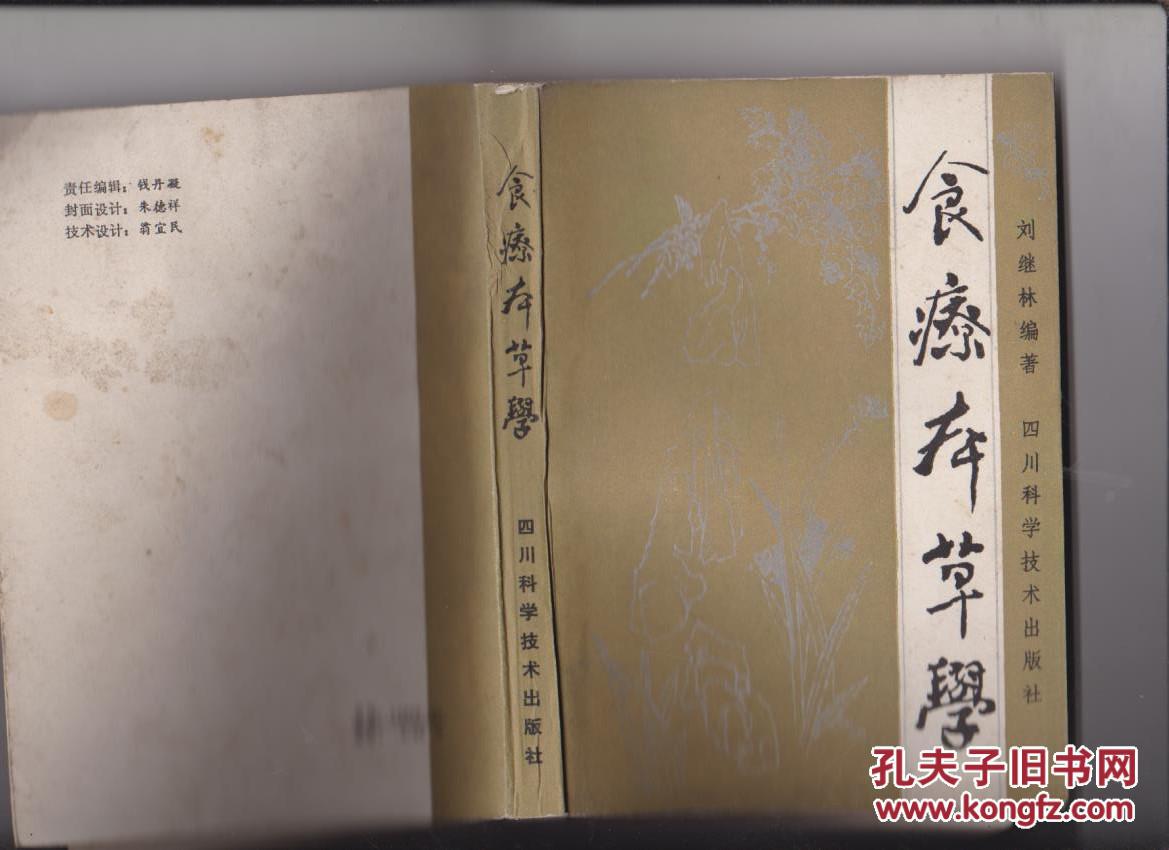 责任编辑：钱丹凝
封面设计：朱德祥
技术设计：翁宜民
食療本草學
四川科学技术出版社
食療本草學
刘继林编著 四川科学技术出版社
孔夫子旧书网
www.kongfz.com